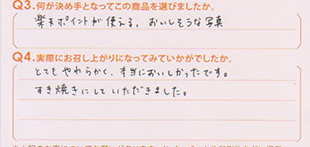 Q3.何が決め手となってこの商品を選びましたか。
楽天ポイントが使える、おいしそうな写真
Q4.実際にお召し上がりになってみていかがでしたか。
とてもやわらかく、本当においしかったです。
すき焼きにしていただきました。